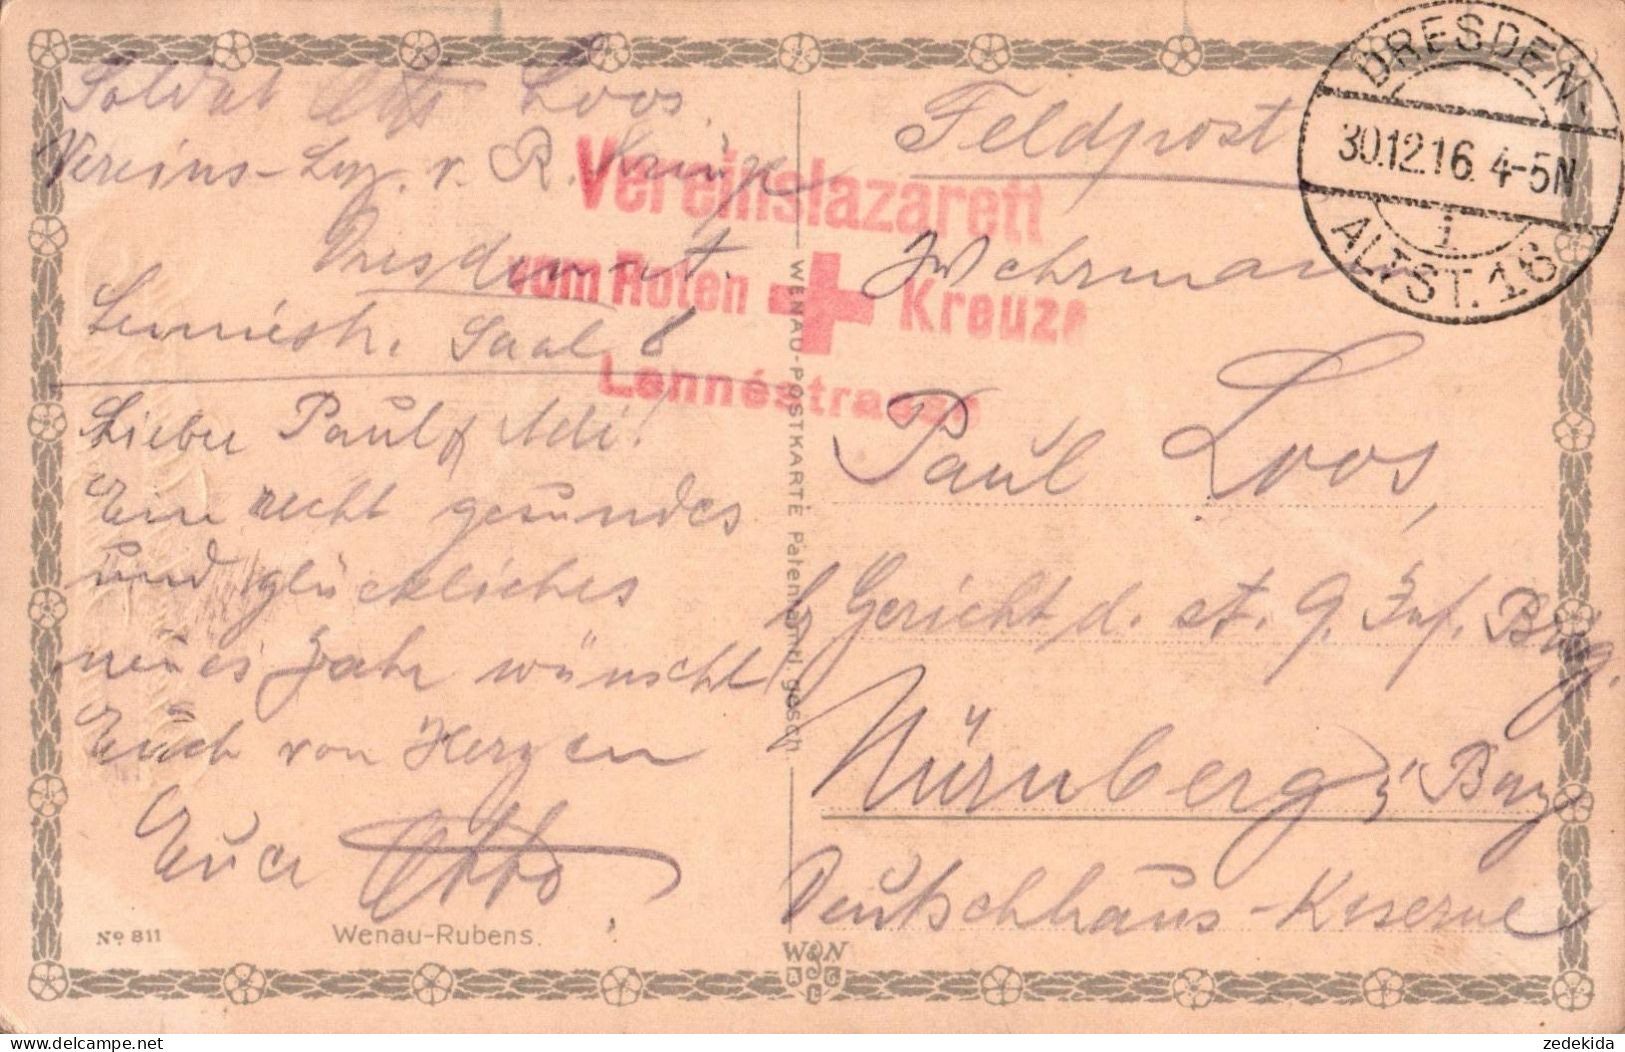 Soldat Otto Loos
Vereins-Laz. v. R. Kreuze
Dresden-A.
Lennéstr. Saal 8
Lieber Paul &
Ein recht gesundes
und glückliches
neues Jahr wünscht
Euch von Herzen
Euer Otto
Nº 811
Wenau-Rubens.
WENAU-POSTKARTE Patentamtl. gesch.
Vereinslazarett
vom Roten Kreuze
Lennéstrasse
DRESDEN-
30.12.16. 4-5N
i
ALTST. 16
Feldpost
Wehrmann
Paul Loos,
Gericht d. st. 9. Inf. Brig.
Nürnberg i Bay
Deutschhaus-Kaserne
W N
zedekida
www.delcampe.net